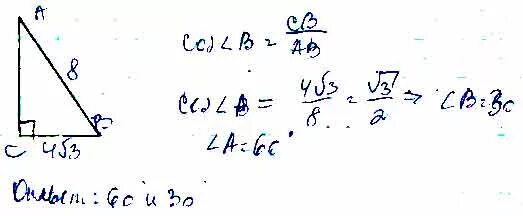 A
8
B
C 4√3
cos∠B = CB/AB
cos∠B = 4√3/8 = √3/2 ⇒ ∠B=30
∠A=60°
Ответ: 60 и 30